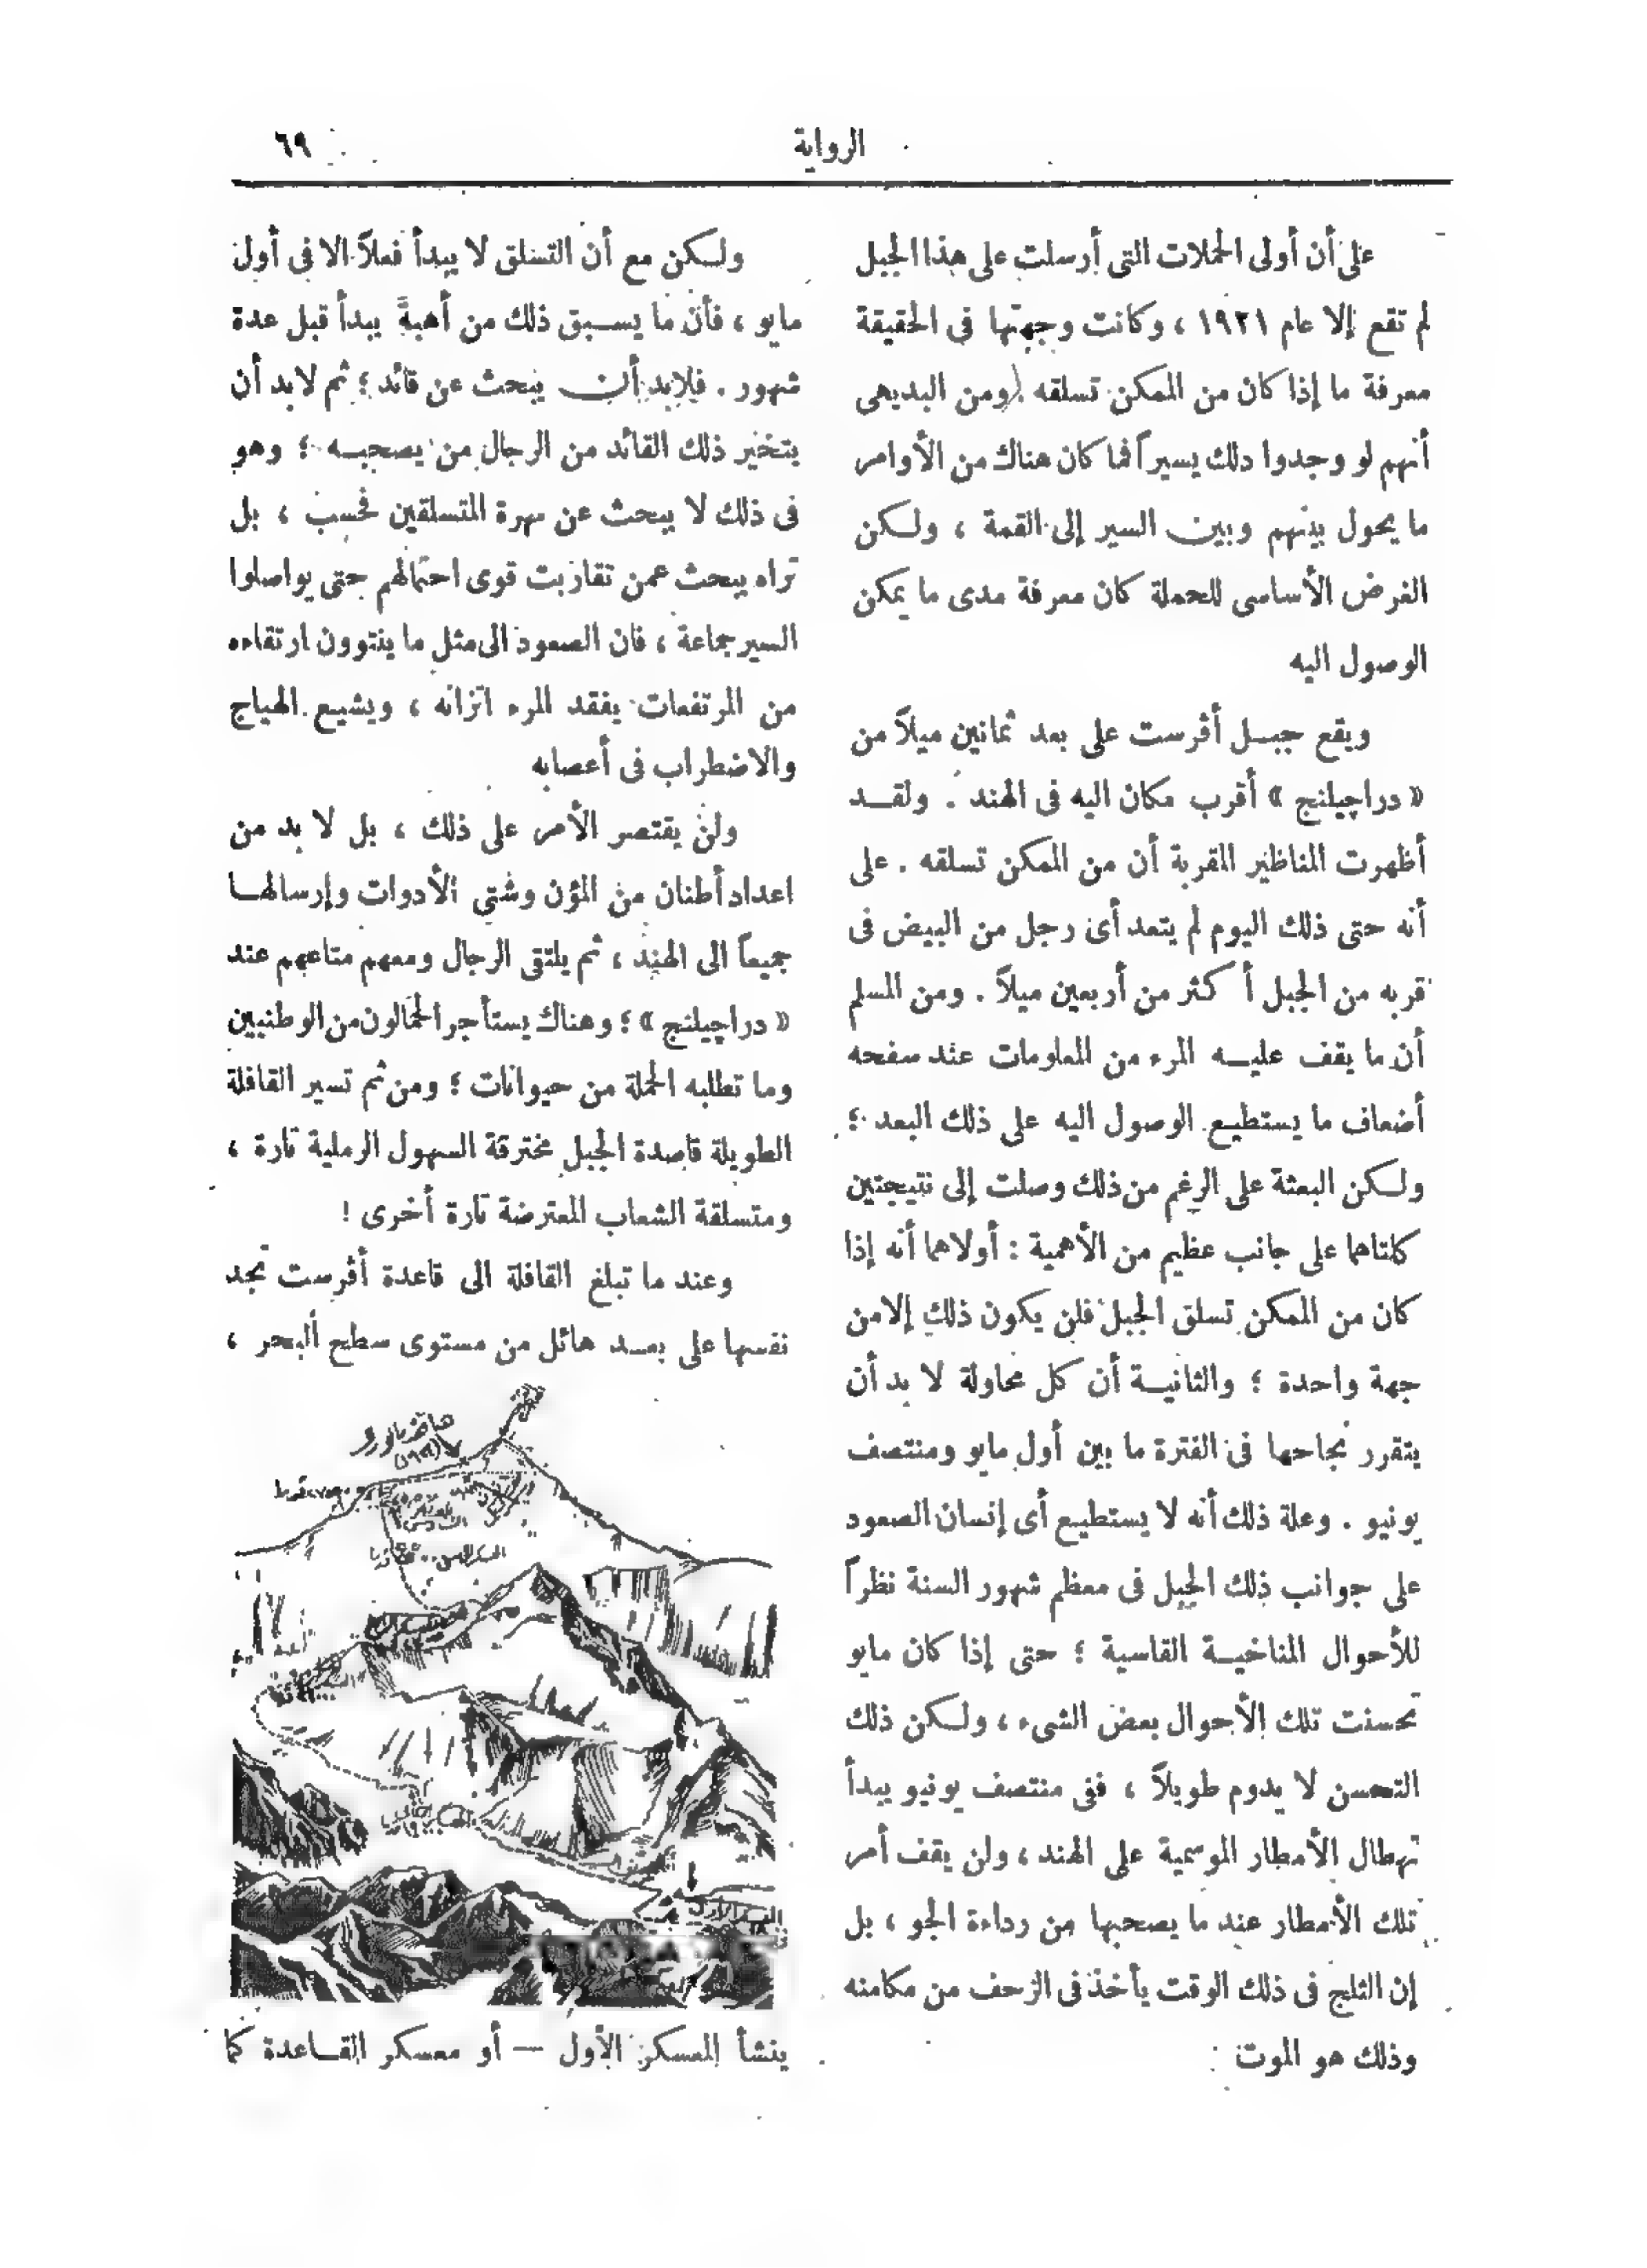 الرواية
٦٩
على أن أولى الحملات التى أرسلت على هذا الجبل
لم تقع إلا عام ١٩٢١ ، وكانت وجهتها فى الحقيقة
معرفة ما إذا كان من الممكن تسلقه . ومن البديهى
أنهم لو وجدوا ذلك يسيراً فما كان هناك من الأوامر
ما يحول بينهم وبين السير إلى القمة ، ولكن
الغرض الأساسى للحملة كان معرفة مدى ما يمكن
الوصول اليه
ويقع جبل أڤرست على بعد ثمانين ميلاً من
« دراچيلنج » أقرب مكان اليه فى الهند . ولقد
أظهرت المناظير المقربة أن من الممكن تسلقه . على
أنه حتى ذلك اليوم لم يتعد أى رجل من البيض فى
قربه من الجبل أكثر من أربعين ميلاً . ومن المسلم
أن ما يقف عليه المرء من المعلومات عند سفحه
أضعاف ما يستطيع الوصول اليه على ذلك البعد ؛
ولكن البعثة على الرغم من ذلك وصلت إلى نتيجتين
كلتاهما على جانب عظيم من الأهمية : أولاهما أنه إذا
كان من الممكن تسلق الجبل فلن يكون ذلك إلا من
جهة واحدة ؛ والثانية أن كل محاولة لا بد أن
يتقرر نجاحها فى الفترة ما بين أول مايو ومنتصف
يونيو . وعلة ذلك أنه لا يستطيع أى إنسان الصعود
على جوانب ذلك الجبل فى معظم شهور السنة نظراً
للأحوال المناخية القاسية ؛ حتى إذا كان مايو
تحسنت تلك الأحوال بعض الشىء ، ولكن ذلك
التحسن لا يدوم طويلاً ، ففى منتصف يونيو يبدأ
تهطال الأمطار الموسمية على الهند ، ولن يقف أمر
تلك الأمطار عند ما يصحبها من رداءة الجو ، بل
إن الثلج فى ذلك الوقت يأخذ فى الزحف من مكامنه
وذلك هو الموت
ولكن مع أن التسلق لا يبدأ فعلاً الا فى أول
مايو ، فأن ما يسبق ذلك من أهبة يبدأ قبل عدة
شهور . فلابد أن يبحث عن قائد ؛ ثم لابد أن
يتخير ذلك القائد من الرجال من يصحبه ؛ وهو
فى ذلك لا يبحث عن مهرة المتسلقين فحسب ، بل
تراه يبحث عمن تقاربت قوى احتمالهم حتى يواصلوا
السير جماعة ، فان الصعود الى مثل ما ينتوون ارتقاءه
من المرتفعات يفقد المرء اتزانه ، ويشيع الهياج
والاضطراب فى أعصابه
ولن يقتصر الأمر على ذلك ، بل لا بد من
اعداد أطنان من المؤن وشتى الأدوات وإرسالها
جميعاً الى الهند ، ثم يلتقى الرجال ومعهم متاعهم عند
« دراچيلنج » ؛ وهناك يستأجر الحمالون من الوطنيين
وما تطلبه الحملة من حيوانات ؛ ومن ثم تسير القافلة
الطويلة قاصدة الجبل مخترقة السهول الرملية تارة ،
ومتسلقة الشعاب المعترضة تارة أخرى !
وعند ما تبلغ القافلة الى قاعدة أڤرست تجد
نفسها على بعد هائل من مستوى سطح البحر ،
ينشأ المعسكر الأول — أو معسكر القاعدة كما